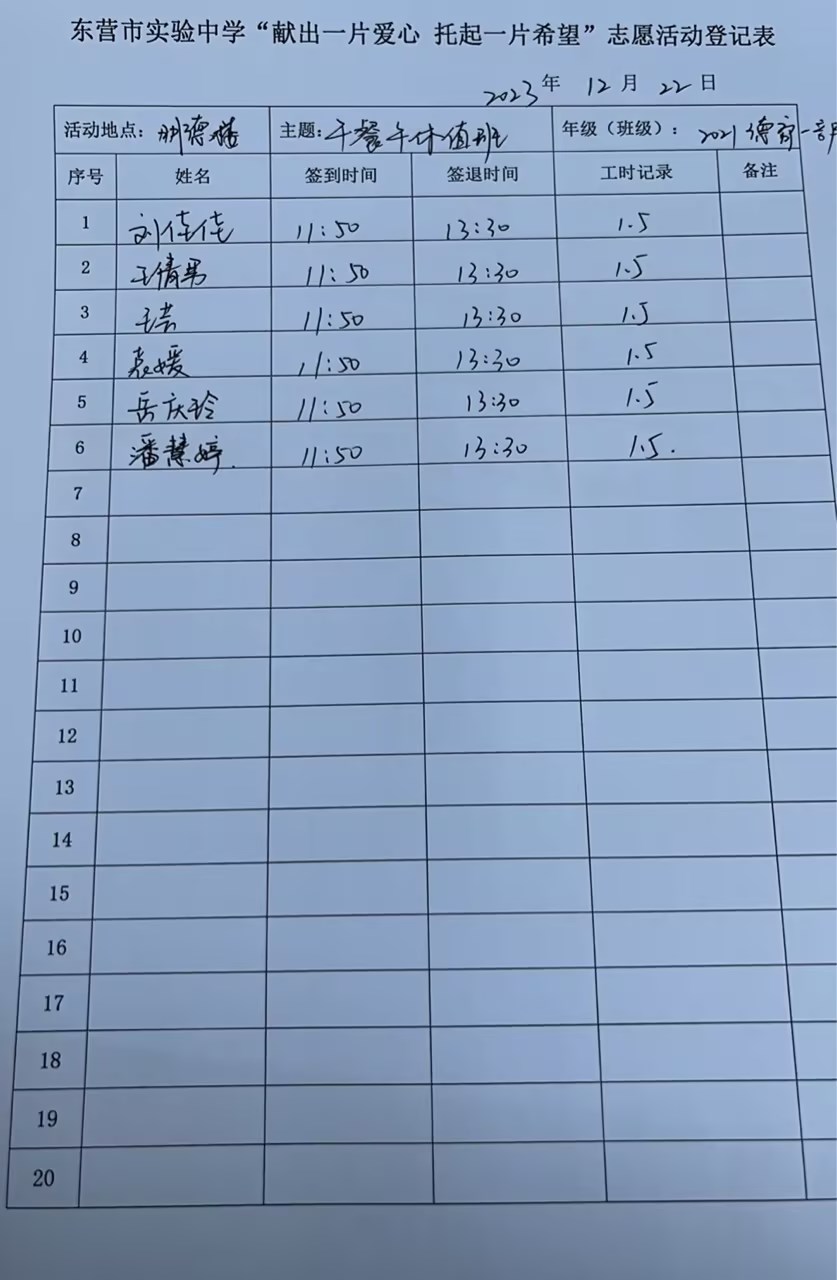 东营市实验中学“献出一片爱心 托起一片希望”志愿活动登记表
2023年 12月 22日
活动地点：明德楼 主题：午餐午休值班 年级（班级）：2021德育一部
序号 姓名 签到时间 签退时间 工时记录 备注
1 刘佳佳 11:50 13:30 1.5
2 王倩男 11:50 13:30 1.5
3 王芸 11:50 13:30 1.5
4 袁媛 11:50 13:30 1.5
5 岳庆玲 11:50 13:30 1.5
6 潘慧婷. 11:50 13:30 1.5.
7
8
9
10
11
12
13
14
15
16
17
18
19
20